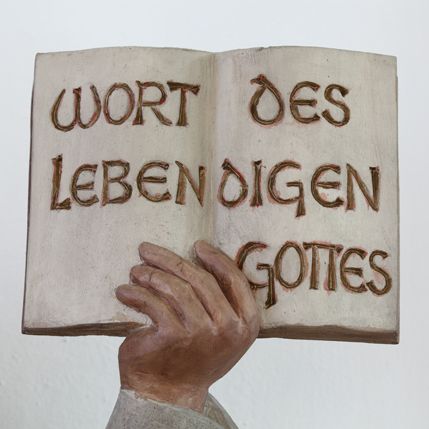 WORT DES
LEBENDIGEN
GOTTES